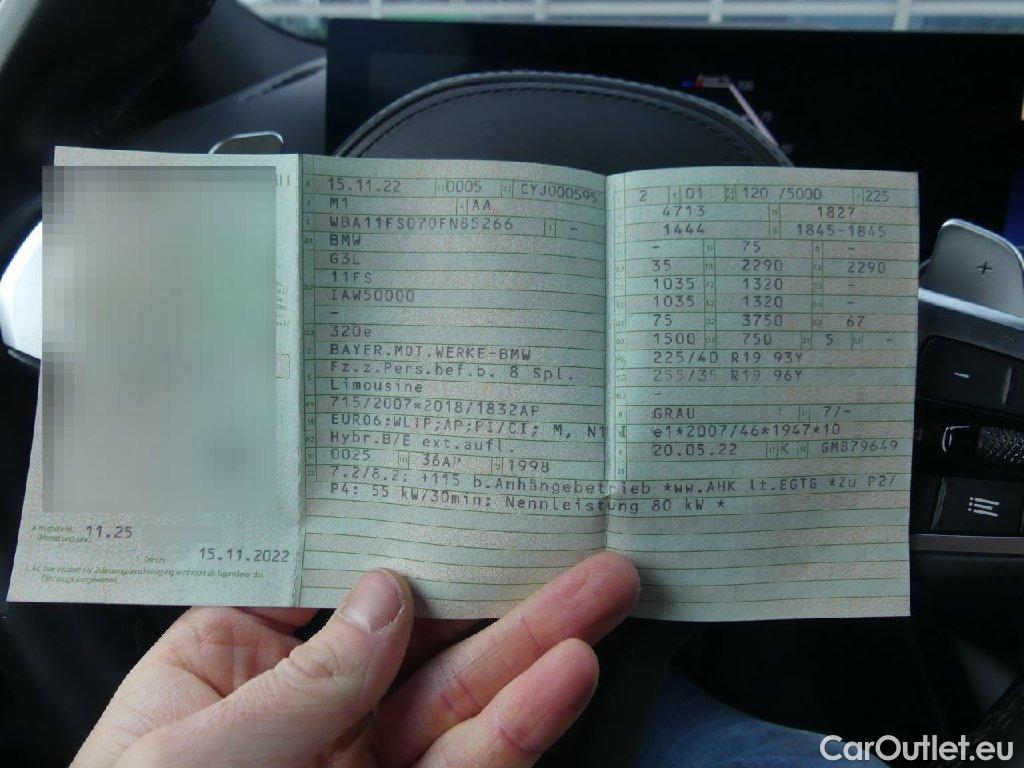 15.11.22 0005 CYJU00595
M1 AA
WBA11FS070FN85266 -
BMW
G3L
11FS
IAW50000
-
320e
BAYER.MOT.WERKE-BMW
Fz.z.Pers.bef.b. 8 Spl.
Limousine
715/2007*2018/1832AP
EURO6;WLTP;AP;PI/CI; M, N1 I
Hybr.B/E ext.aufl.
0025 36AP 1998
7.2/8.2: +115 b.Anhängebetrieb *ww.AHK lt.EGTG *ZU P2/
P4: 55 kW/30min: Nennleistung 80 kW *
2 01 120 /5000 225
4713 1827
1444 1845-1845
- 75 -
35 2290 2290
1035 1320 -
1035 1320 -
75 3750 67
1500 750 5 -
225/40 R19 93Y
255/35 R19 96Y
-
GRAU 7/-
e1*2007/46*1947*10
20.05.22 K GM879649
11.25
(Monat und Jahr)
Datum
15.11.2022
Der Inhaber der Zulassungsbescheinigung wird nicht als Eigentümer des
Fahrzeugs ausgewiesen.
+
-
CarOutlet.eu